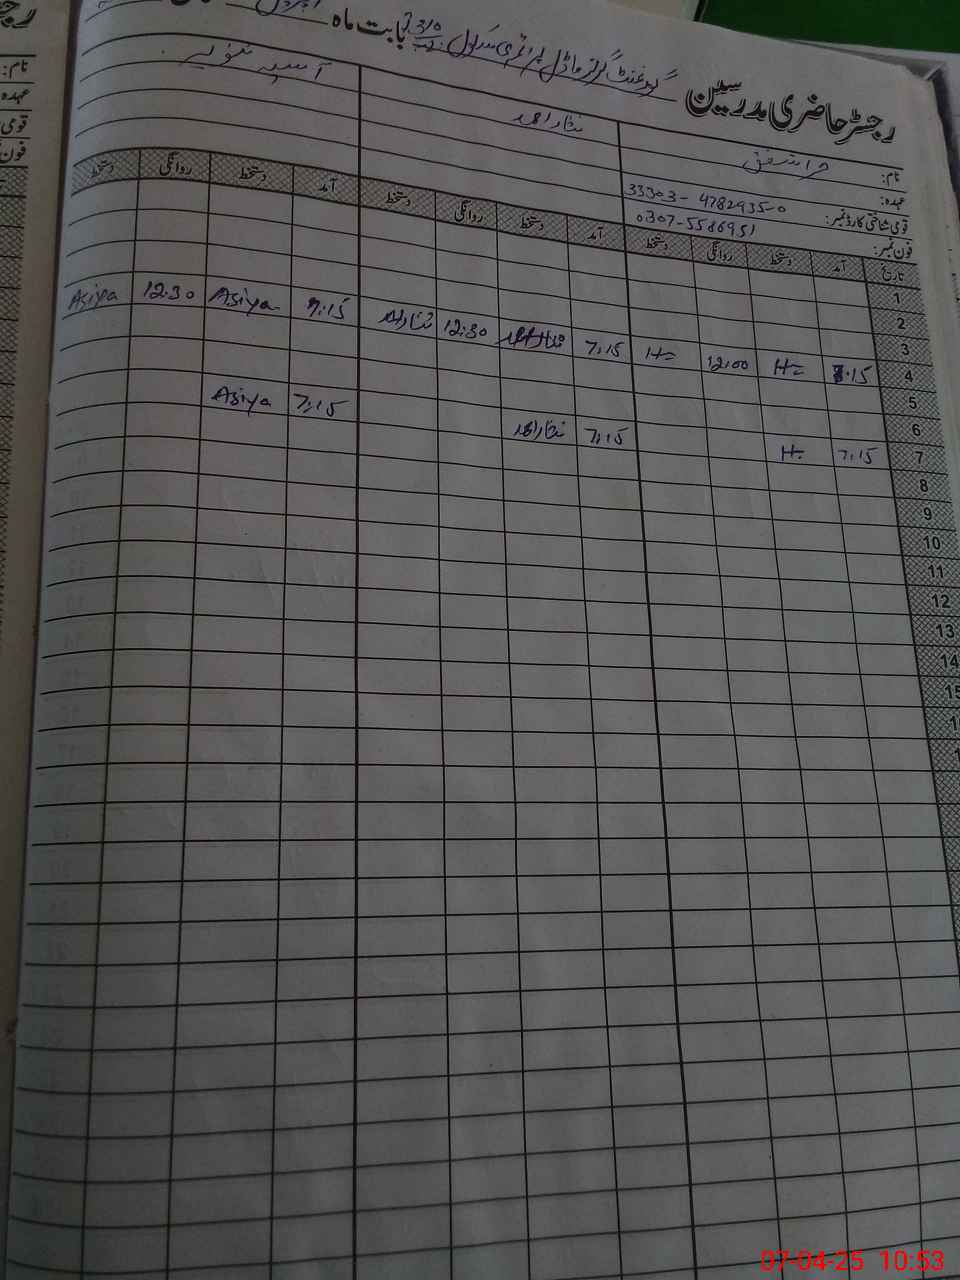 رجسٹر حاضری مدرسین گورنمنٹ گرلز ماڈل پرائمری سکول بابت ماہ
نام: نثار احمد آسیہ
عہدہ:
قومی شناختی کارڈ نمبر: 33303-4782935-0
فون نمبر: 0307-5586951
تاریخ آمد دستخط روانگی دستخط آمد دستخط روانگی دستخط آمد دستخط روانگی دستخط
1
2
3
4 7:15 H= 12:00 H= 7:15 نثار احمد 12:30 نثار احمد 7:15 Asiya 12:30 Asiya
5
6
7 7:15 H= 7:15 نثار احمد 7:15 Asiya
8
9
10
11
12
13
14
07-04-25 10:53